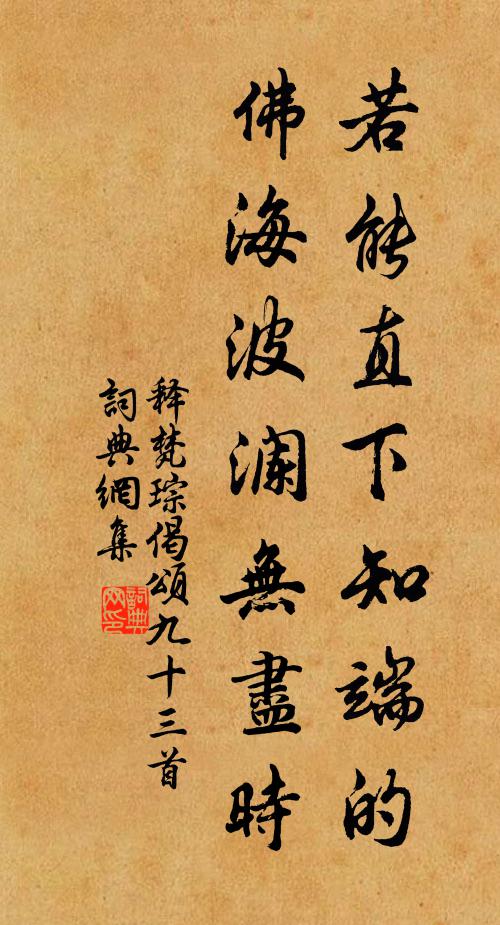 若能直下知端的
佛海波澜無盡時
释梵琮偈頌九十三首
詞典網集
詞典网印